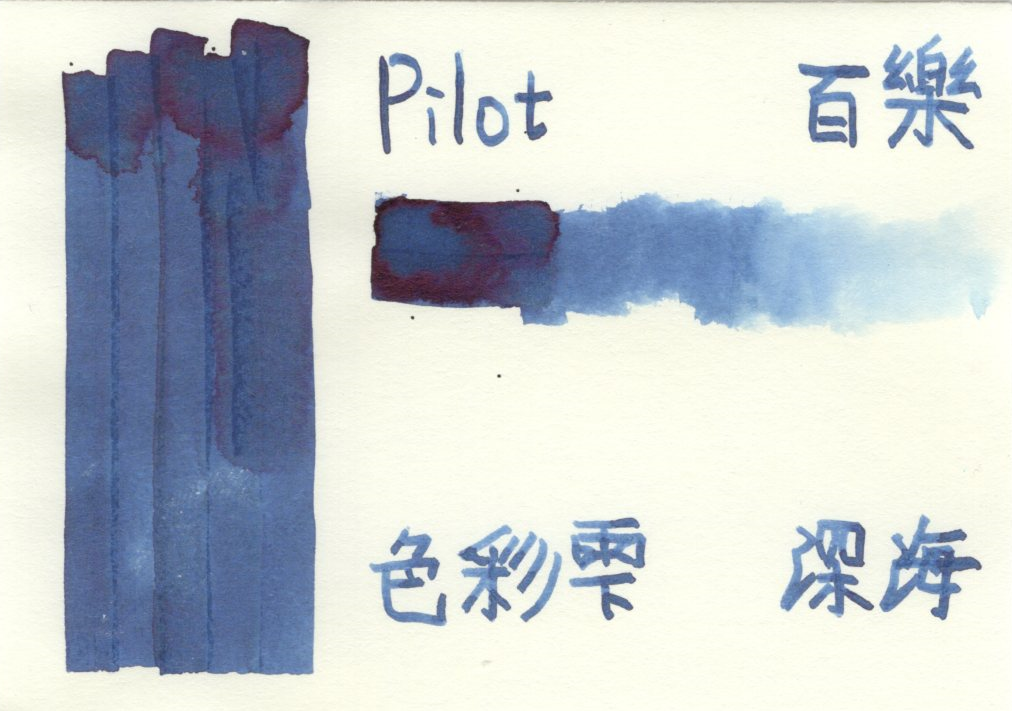 Pilot 百樂
色彩雫 深海